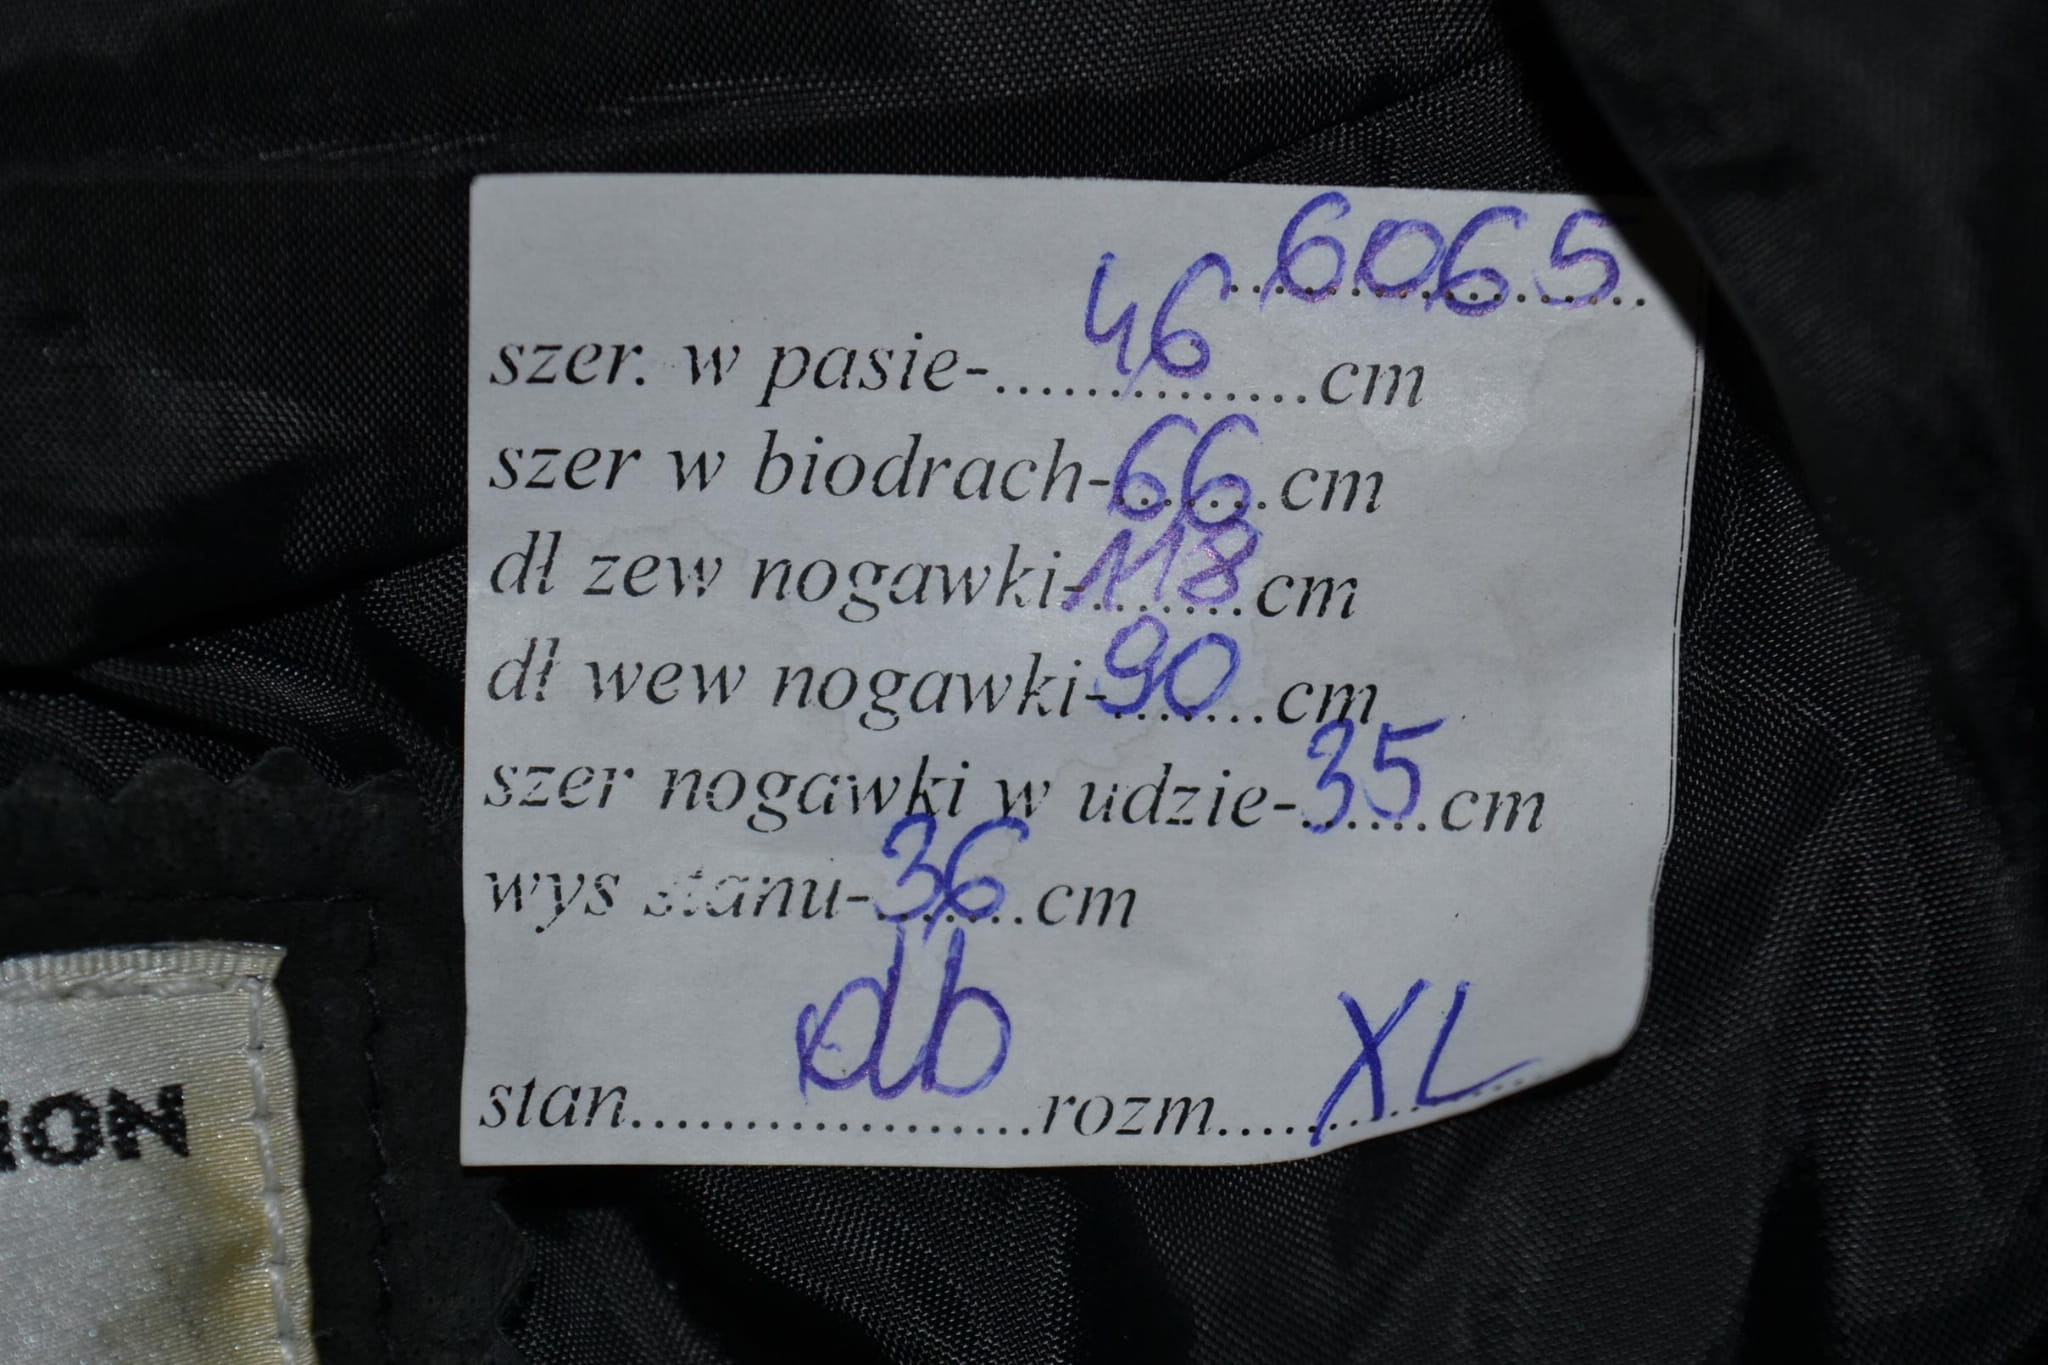 6065
szer. w pasie-46cm
szer w biodrach-66cm
dł zew nogawki-118cm
dł wew nogawki-90cm
szer nogawki w udzie-35cm
wys stanu-36cm
stan db rozm XL